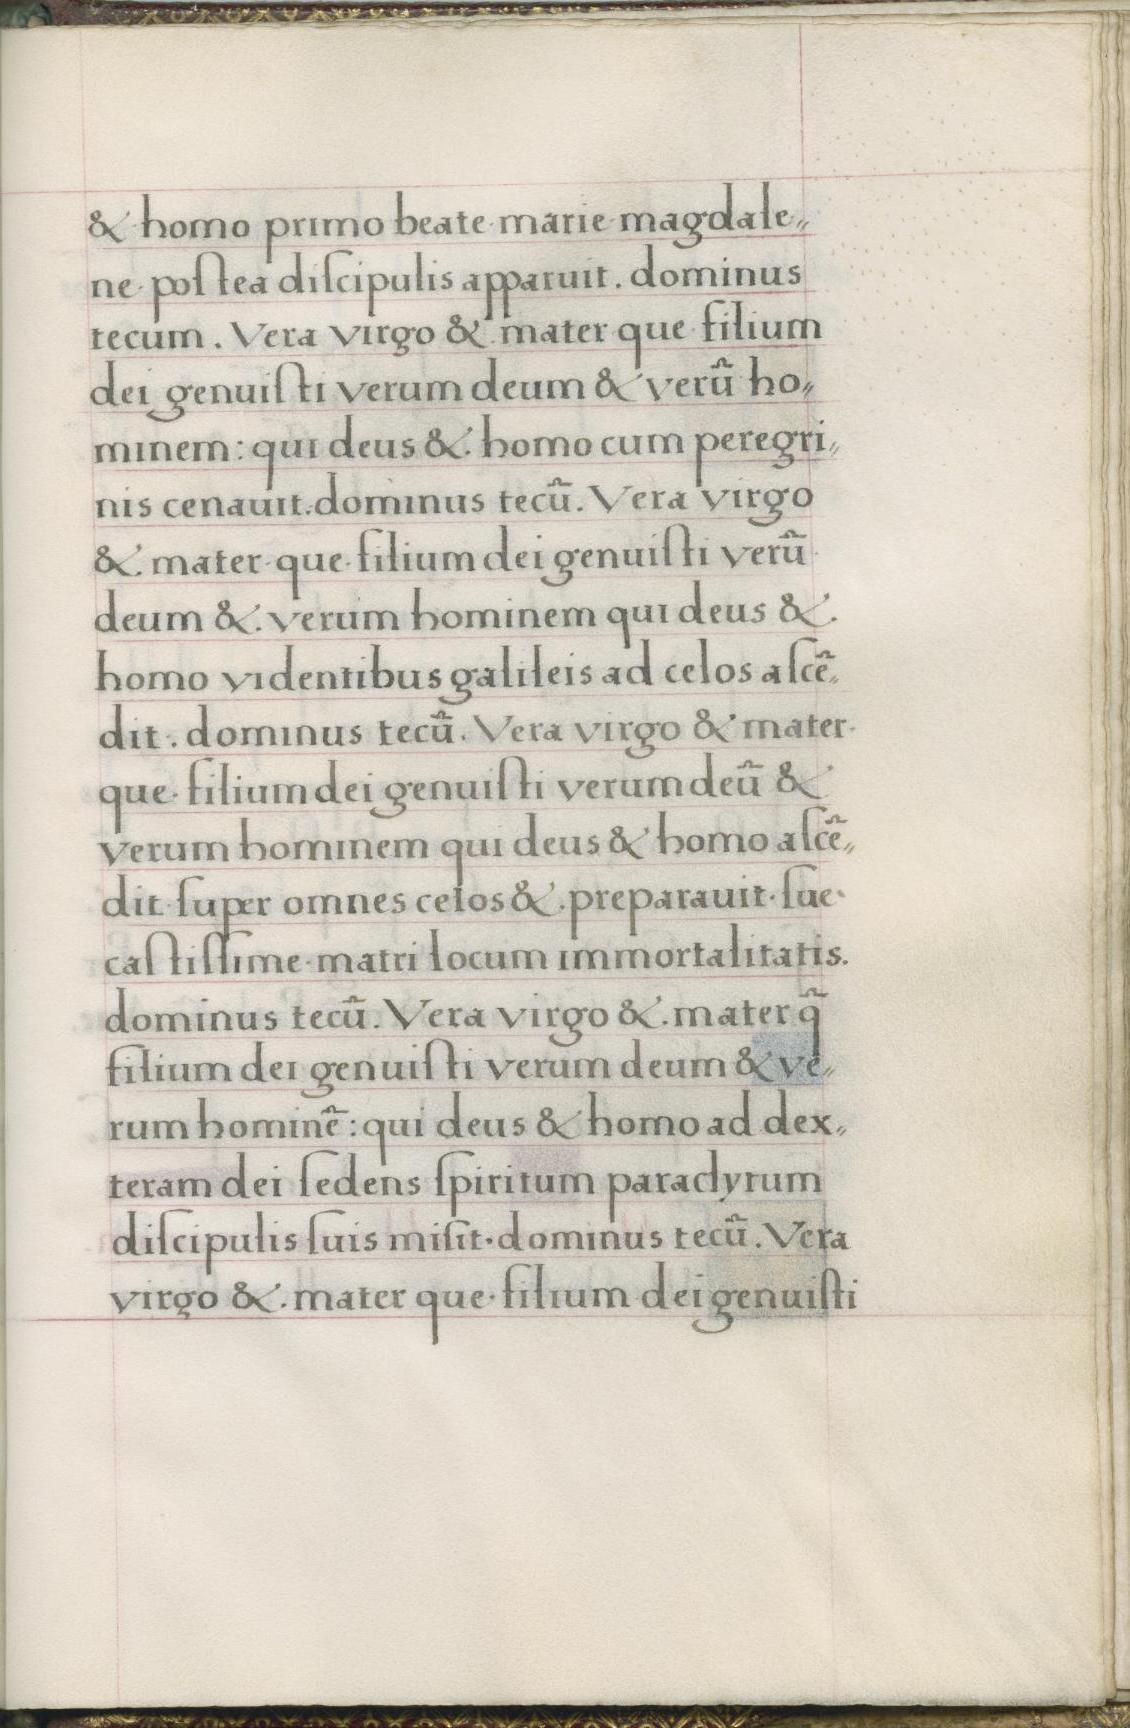 & homo primo beate marie magdale„
ne poſtea diſcipulis apparuit. dominus
tecum. Vera virgo & mater que filium
dei genuiſti verum deum & verũ ho„
minem: qui deus &. homo cum peregri„
nis cenauit. dominus tecũ. Vera virgo
&. mater que filium dei genuiſti verũ
deum &. verum hominem qui deus &.
homo videntibus galileis ad celos aſcẽ„
dit. dominus tecũ. Vera virgo & mater
que filium dei genuiſti verum deũ &
verum hominem qui deus & homo aſcẽ„
dit ſuper omnes celos &. preparauit ſue
caſtiſſime matri locum immortalitatis.
dominus tecũ. Vera virgo &. mater q̃
filium dei genuiſti verum deum & ve„
rum hominẽ: qui deus & homo ad dex„
teram dei ſedens ſpiritum paraclytum
diſcipulis ſuis miſit. dominus tecũ. Vera
virgo &. mater que filium dei genuiſti